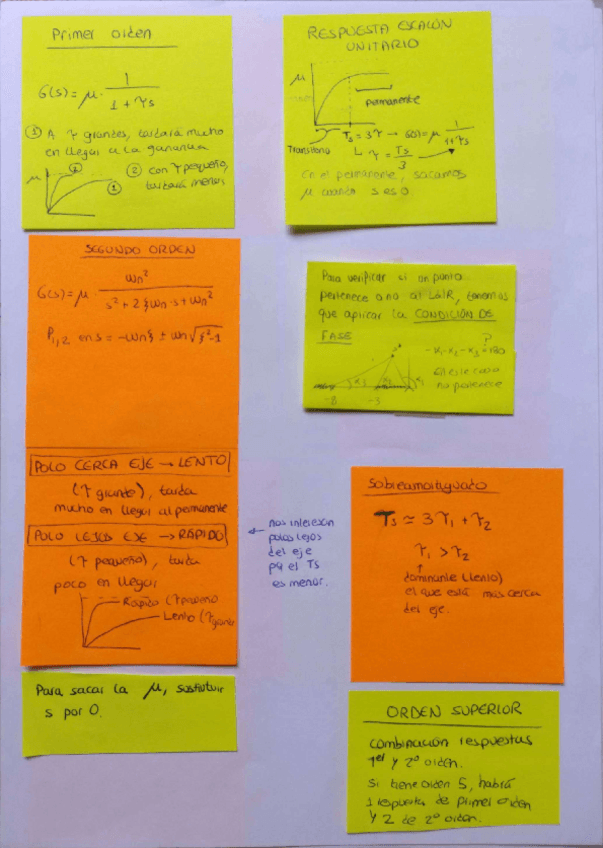 Primer orden
G(s) = μ · 1 / 1 + τs
① A τ grandes, tardará mucho
en llegar a la ganancia
② con τ pequeño,
tardará menos
μ
②
①
RESPUESTA ESCALÓN
UNITARIO
μ
permanente
Transitorio
Ts = 3τ → G(s) = μ 1 / 1+τs
↳ τ = Ts / 3
En el permanente, sacamos
μ cuando s es 0
SEGUNDO ORDEN
G(s) = μ · ωn² / s² + 2ξωn·s + ωn²
P1,2 en s = -ωnξ ± ωn√ξ²-1
Para verificar si un punto
pertenece o no al LdlR, tenemos
que aplicar la CONDICIÓN DE
FASE
- α1 - α2 - α3 = 180
?
En este caso
no pertenece
-8
-3
POLO CERCA EJE → LENTO
(τ grande), tarda
mucho en llegar al permanente
POLO LEJOS EJE → RÁPIDO
(τ pequeño), tarda
poco en llegar
Rápido (τ pequeño
Lento (τ grande
← nos interesan
polos lejos
del eje
pq el Ts
es menor.
Sobreamortiguado
Ts ≃ 3τ1 + τ2
τ1 > τ2
↑
dominante (lento)
el que está más cerca
del eje.
Para sacar la μ, sustituir
s por 0.
ORDEN SUPERIOR
combinación respuestas
1er y 2º orden.
Si tiene orden 5, habrá
1 respuesta de primer orden
y 2 de 2º orden.